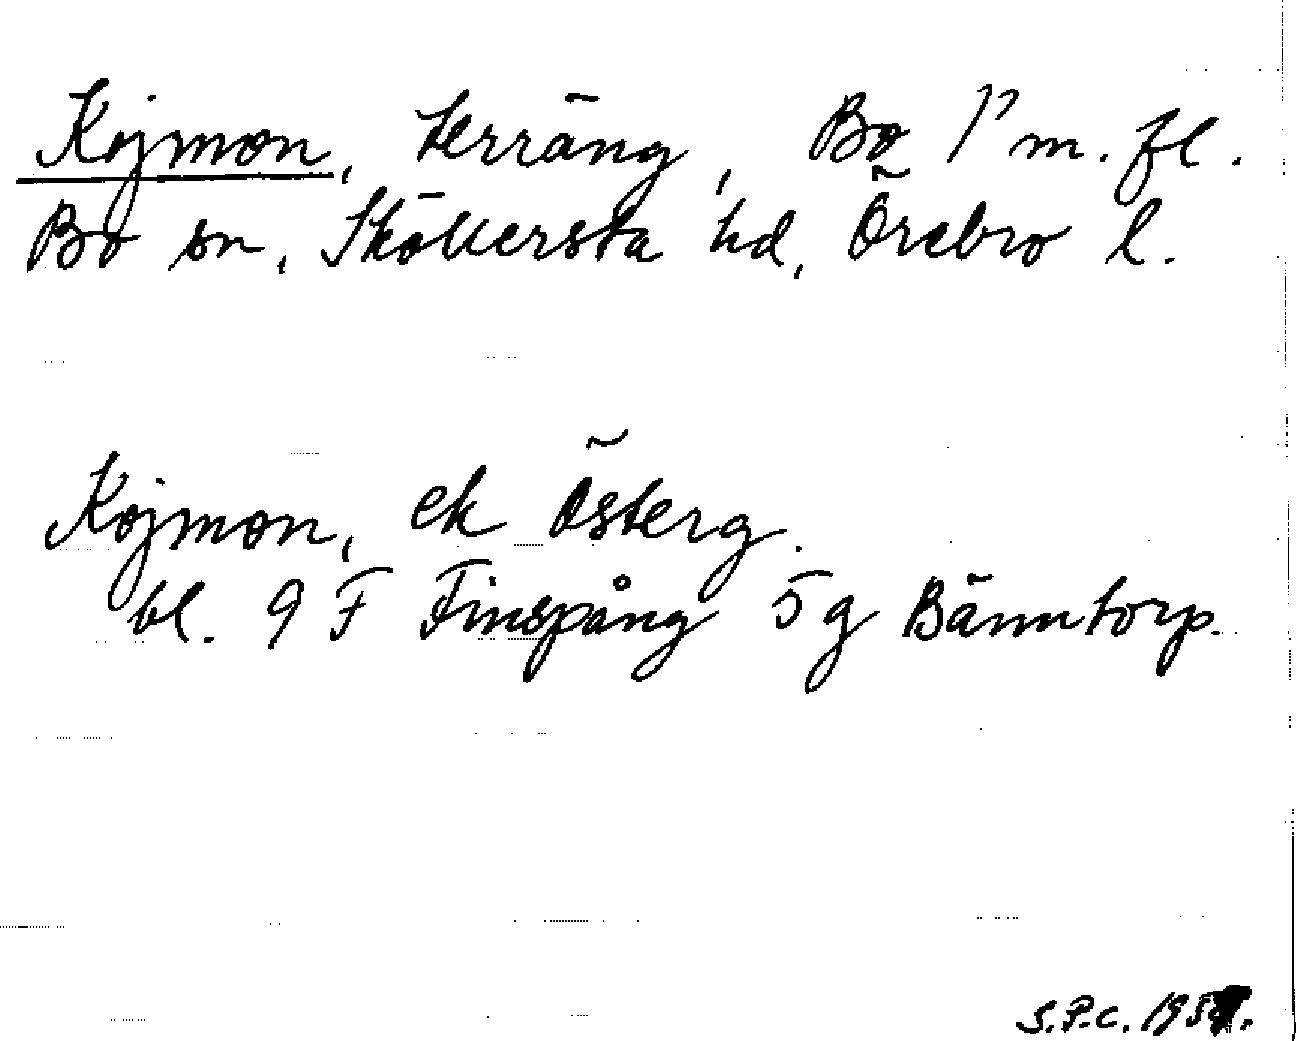 Kojmon, terräng, Bo 1¹⁷ m. fl.
Bo sn, Sköllersta hd, Örebro l.
Kojmon, ek Österg.
bl. 9 F Finspång 5 g Bänntorp.
S.P.C.